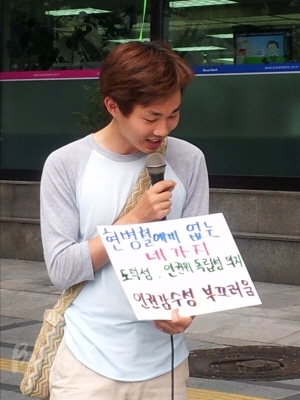 현병철에게 없는
네가지
도덕성. 인권위 독립성 의지
인권감수성 부끄러움